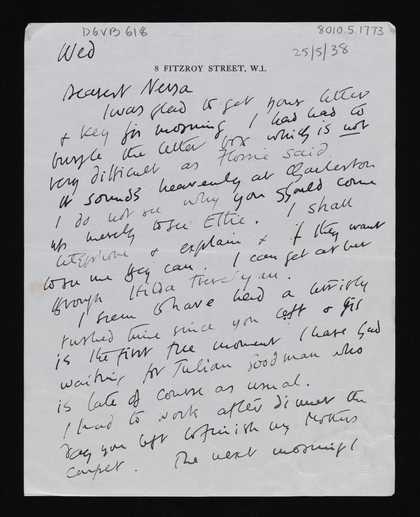 DGVB 618
8010.5.1773
Wed
25/5/38
8 FITZROY STREET, W.1.
Dearest Nessa
I was glad to get your letter
& key this morning. I had had to
burgle the letter box which is not
very difficult as Flossie said.
It sounds heavenly at Charleston
I do not see why you should come
up merely to see Ethie. I shall
telephone & explain & if they want
to see me they can. I can get at her
through Hilda
I seem to have had a terribly
rushed time since you left & this
is the first free moment I have had
waiting for Julian Goodman who
is late of course as usual.
I had to work after dinner the
day you left to finish my Mothers
carpet. The next morning I